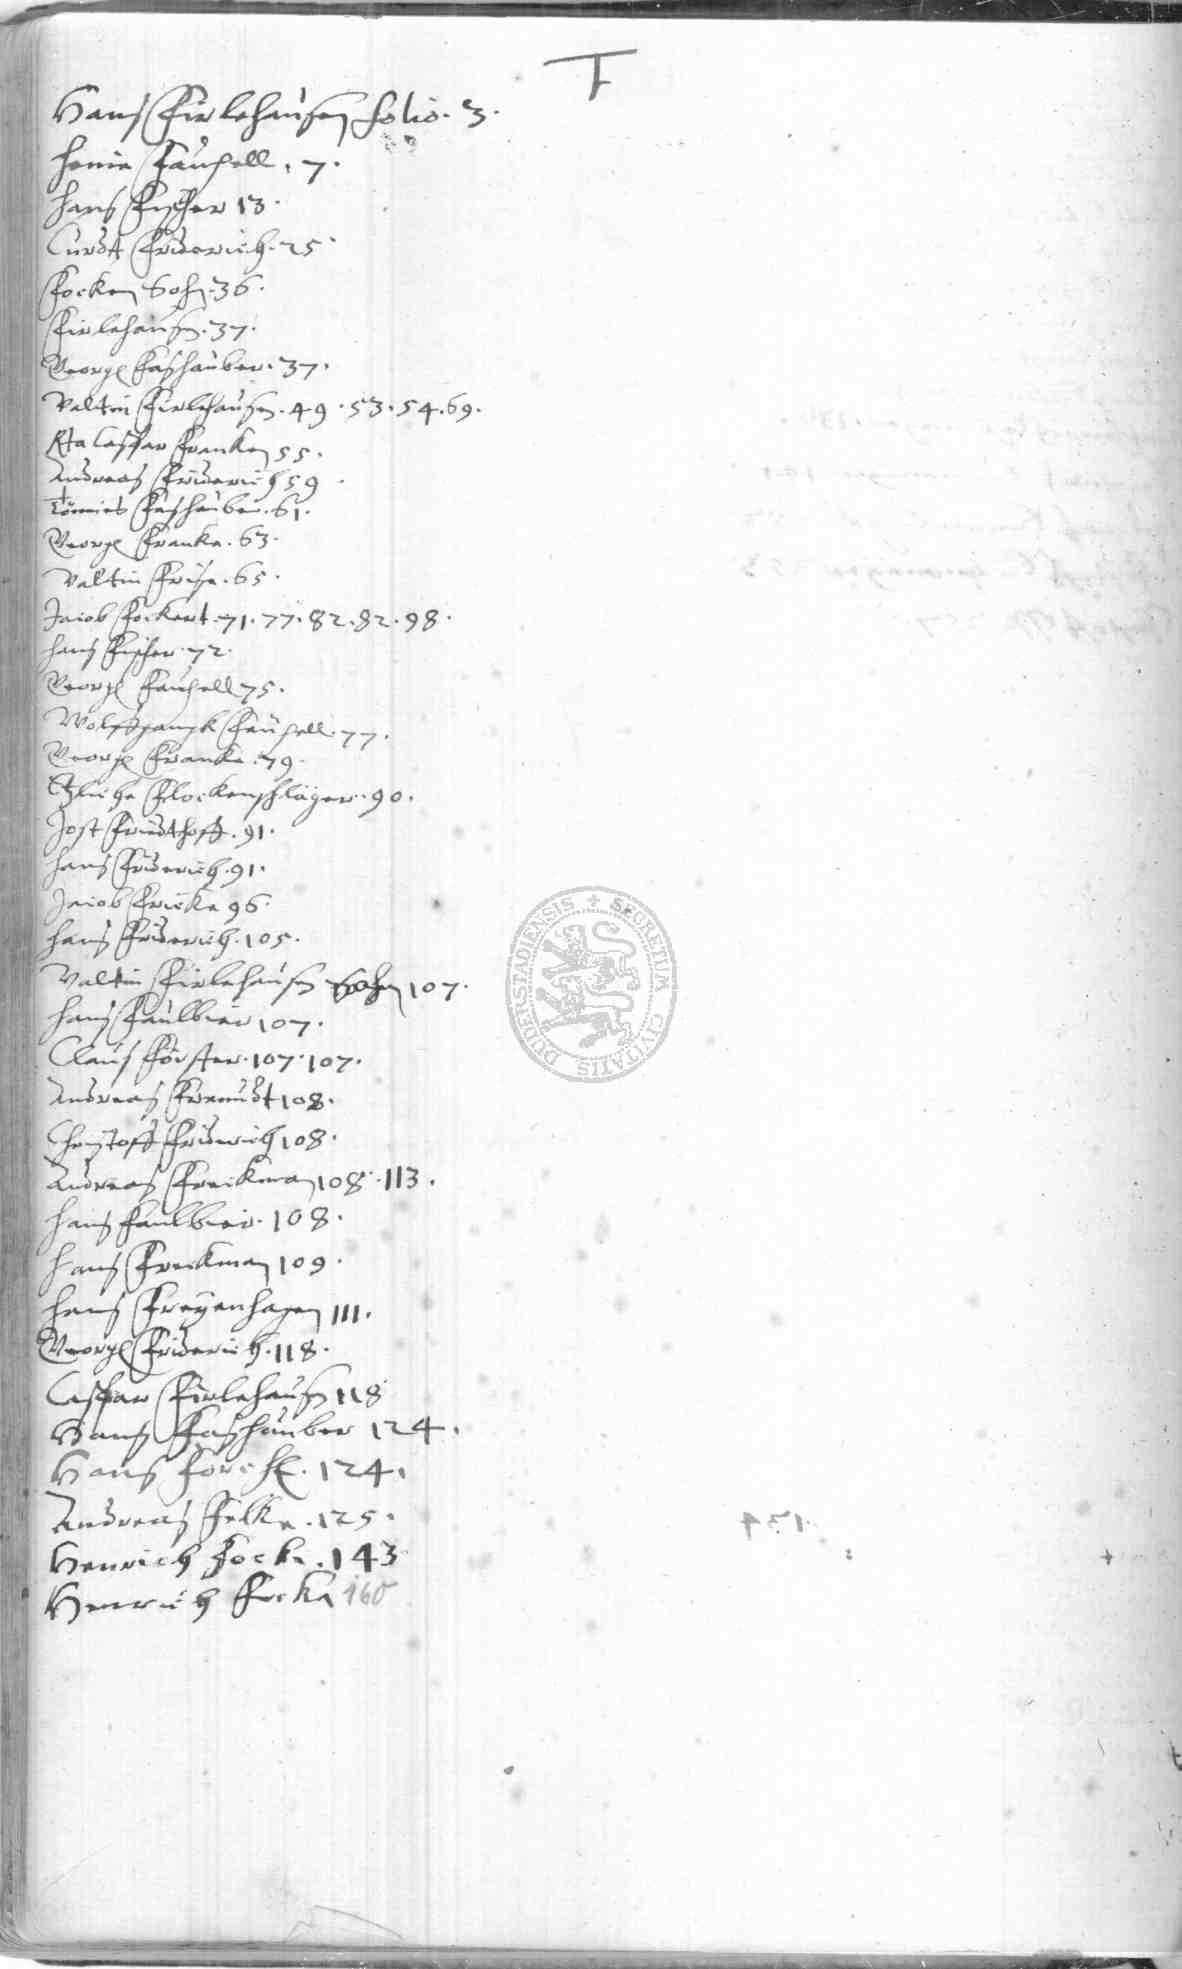 F
Hans Firlehausen folio. 3.
Henie Faupell. 7.
Hans Fischer 13.
Curdt Friderich. 25
Focken Sohn. 36.
Firlehausen. 37.
Georg Fashauber. 37.
Valtin Firlehausen. 49. 53. 54. 69.
Caspar Franken 55.
Andreas Friderich 59
Tönnies Fashauber. 61.
Georg Franke. 63.
Valtin Frise. 65.
Jacob Fockert. 71. 77. 82. 82. 98.
Hans Fischer. 72.
Georg Faupell 75.
Wolffgangk Faupell. 77.
Georg Franke. 79.
Flockenschläger. 90.
Jost Friedthoff. 91.
Hans Friderich. 91.
Jacob Fricke 96.
Hans Friderich. 105.
Valtin Firlehausen 107.
Hans Faulbier 107.
Claus Förster. 107. 107.
Andreas Freundt 108.
Christoff Friderich 108.
Andreas Freckman 108. 113.
Hans Faulbier. 108.
Hans Freckman 109.
Hans Freyenhagen 111.
Georg Friderich. 118.
Caspar Firlehausen 118
Hans Fashauber 124.
Hans 124.
Andreas Felke. 125.
Henrich Focke. 143
Henrich Focke 160
SECRETUM CIVITATIS DUDERSTADIENSIS